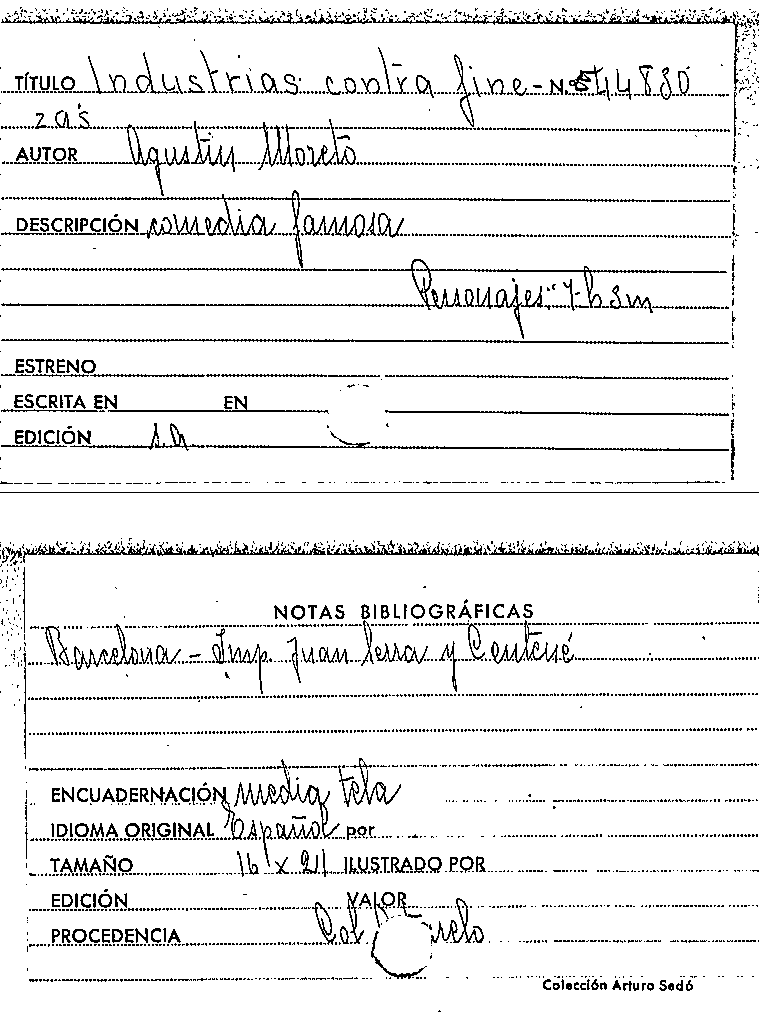 TÍTULO Industrias contra fine- N.º 44830
zas
AUTOR Agustin Moreto
DESCRIPCIÓN comedia famosa
Personajes: 7 h 3 m
ESTRENO
ESCRITA EN EN
EDICIÓN s.a
NOTAS BIBLIOGRÁFICAS
Barcelona - Imp. Juan Serra y Centené
ENCUADERNACIÓN media tela
IDIOMA ORIGINAL Español por
TAMAÑO 16 x 21 ILUSTRADO POR
EDICIÓN VALOR
PROCEDENCIA Col
Colección Arturo Sedó